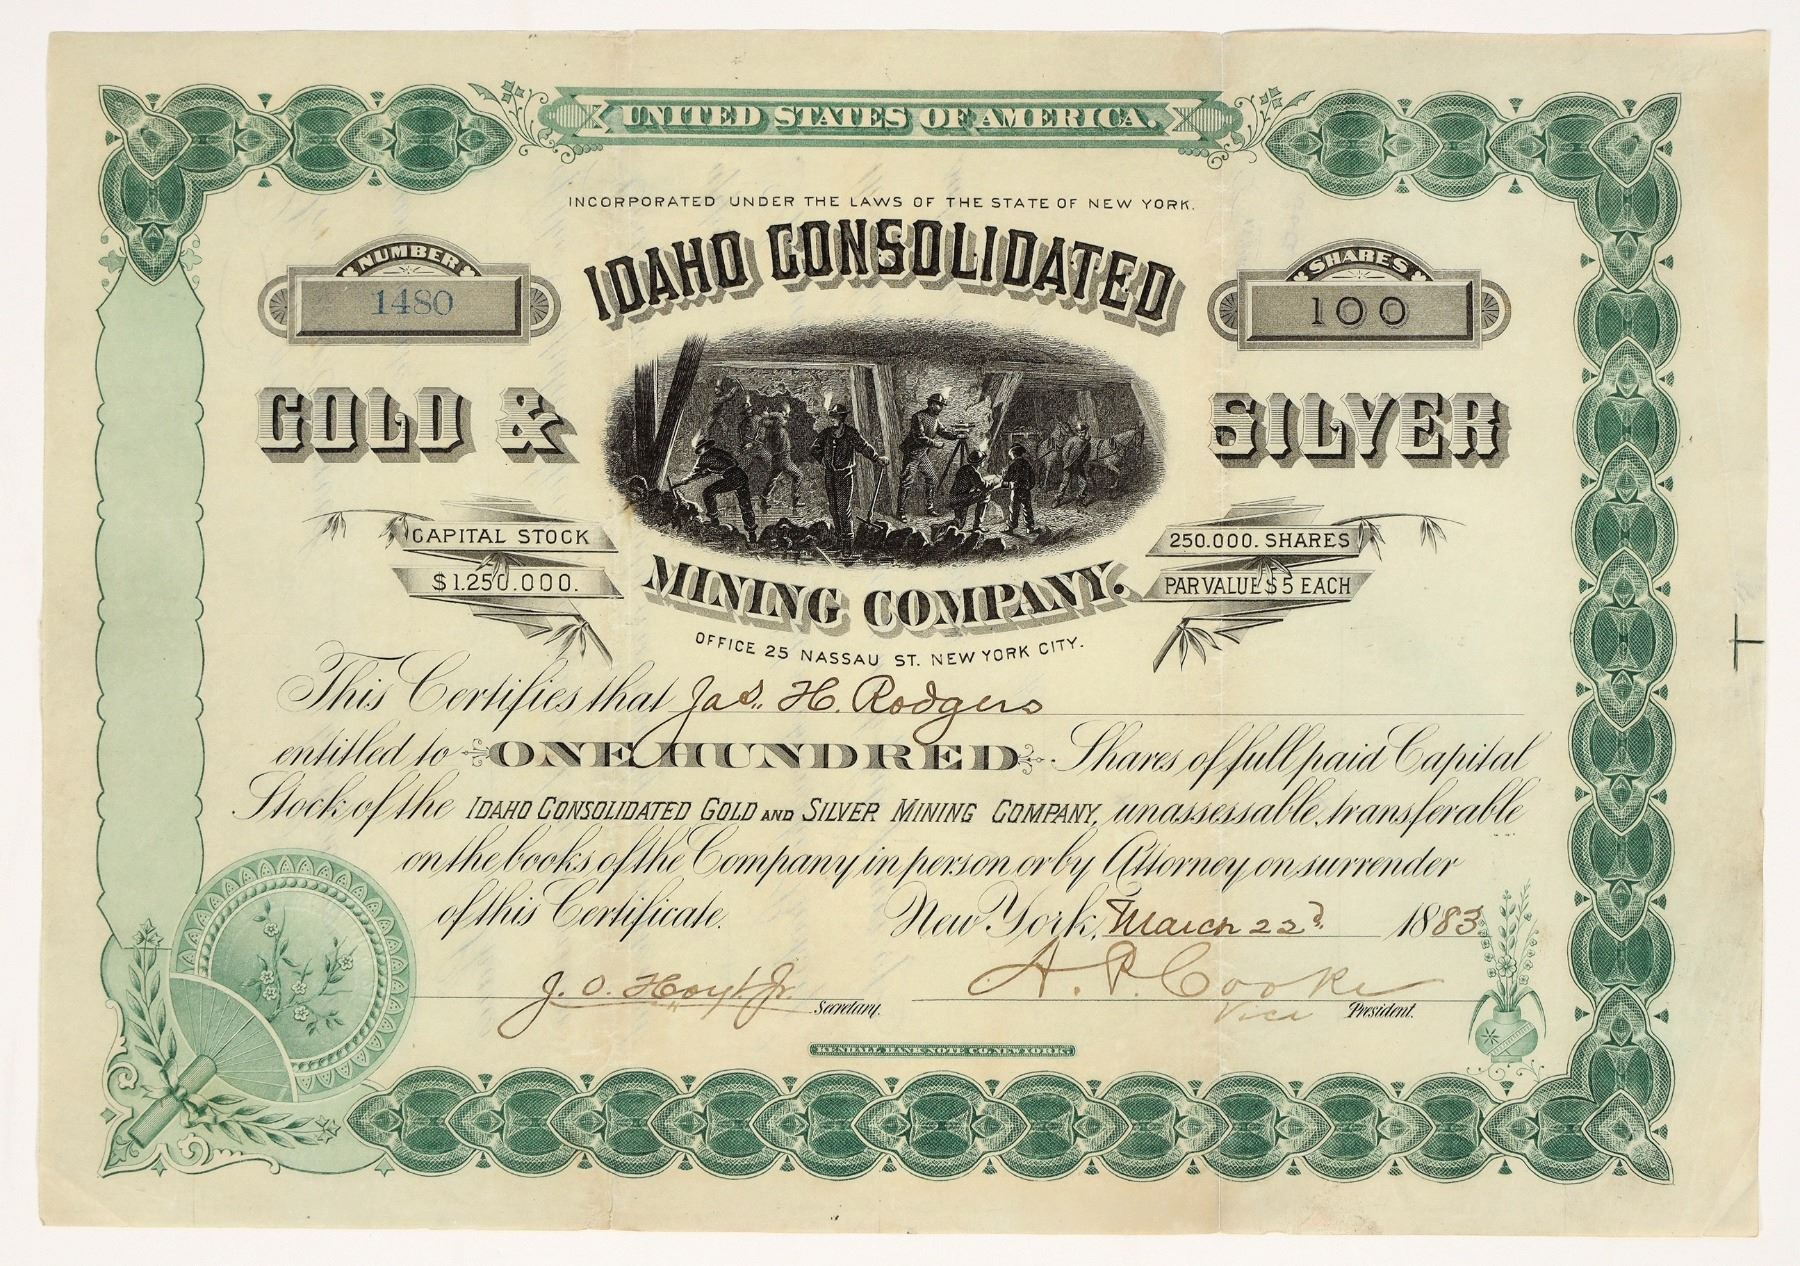 UNITED STATES OF AMERICA.
INCORPORATED UNDER THE LAWS OF THE STATE OF NEW YORK.
NUMBER
1480
IDAHO CONSOLIDATED
SHARES
100
GOLD & SILVER
CAPITAL STOCK
$1.250.000.
250.000. SHARES
PAR VALUE $5 EACH
MINING COMPANY.
OFFICE 25 NASSAU ST. NEW YORK CITY.
This Certifies that Jas. H. Rodgers
entitled to ONE HUNDRED Shares of full paid Capital
Stock of the IDAHO CONSOLIDATED GOLD AND SILVER MINING COMPANY, unassessable, transferable
on the books of the Company in person or by Attorney on surrender
of this Certificate. New York, March 22d. 1883
J. O. Hoyt Jr. Secretary. A. P. Cooke Vice President.
KENDALL BANK NOTE CO. NEW YORK.